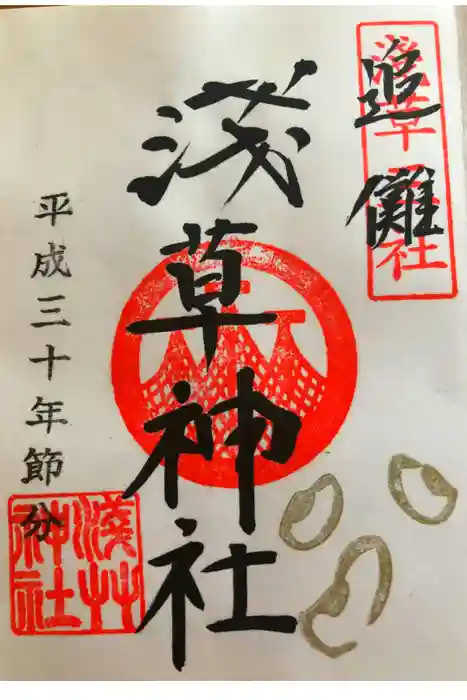 追儺
浅草神社
淺草神社
平成三十年節分
淺草神社